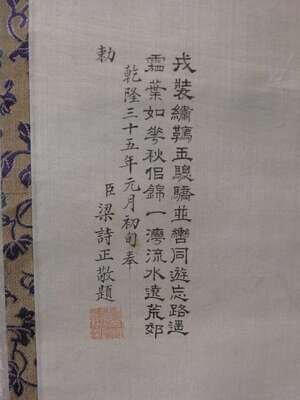 戎裝繡韉玉驄驕並轡同遊忘路遥
霜葉如花秋佀錦一灣流水遶荒郊
乾隆三十五年元月初旬奉
勅
臣梁詩正敬題